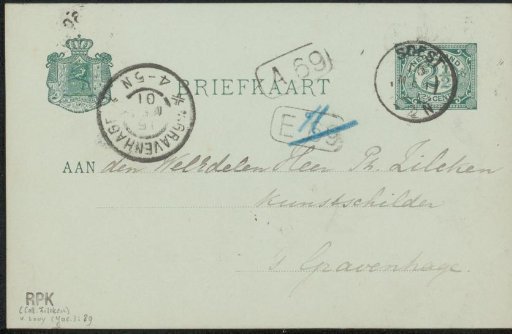 BRIEFKAART
A 69
SOEST
'S GRAVENHAGE
4-5N
01
E
H
AAN den WelEdelen Heer Ph. Zilcken
Kunstschilder
's Gravenhage.
RPK
(Coll. Zilcken)